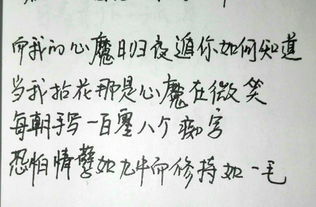 而我的心魔日归夜遁你如何知道
当我拈花那是心魔在微笑
每朝手写一百零八个痴字
恐怕情孽如九牛而修持如一毛